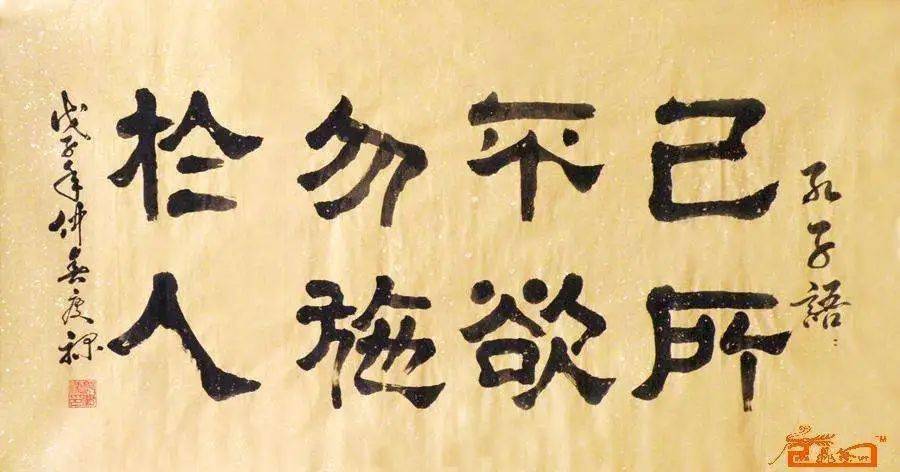 孔子語：
己所
不欲
勿施
於人
戊子年仲